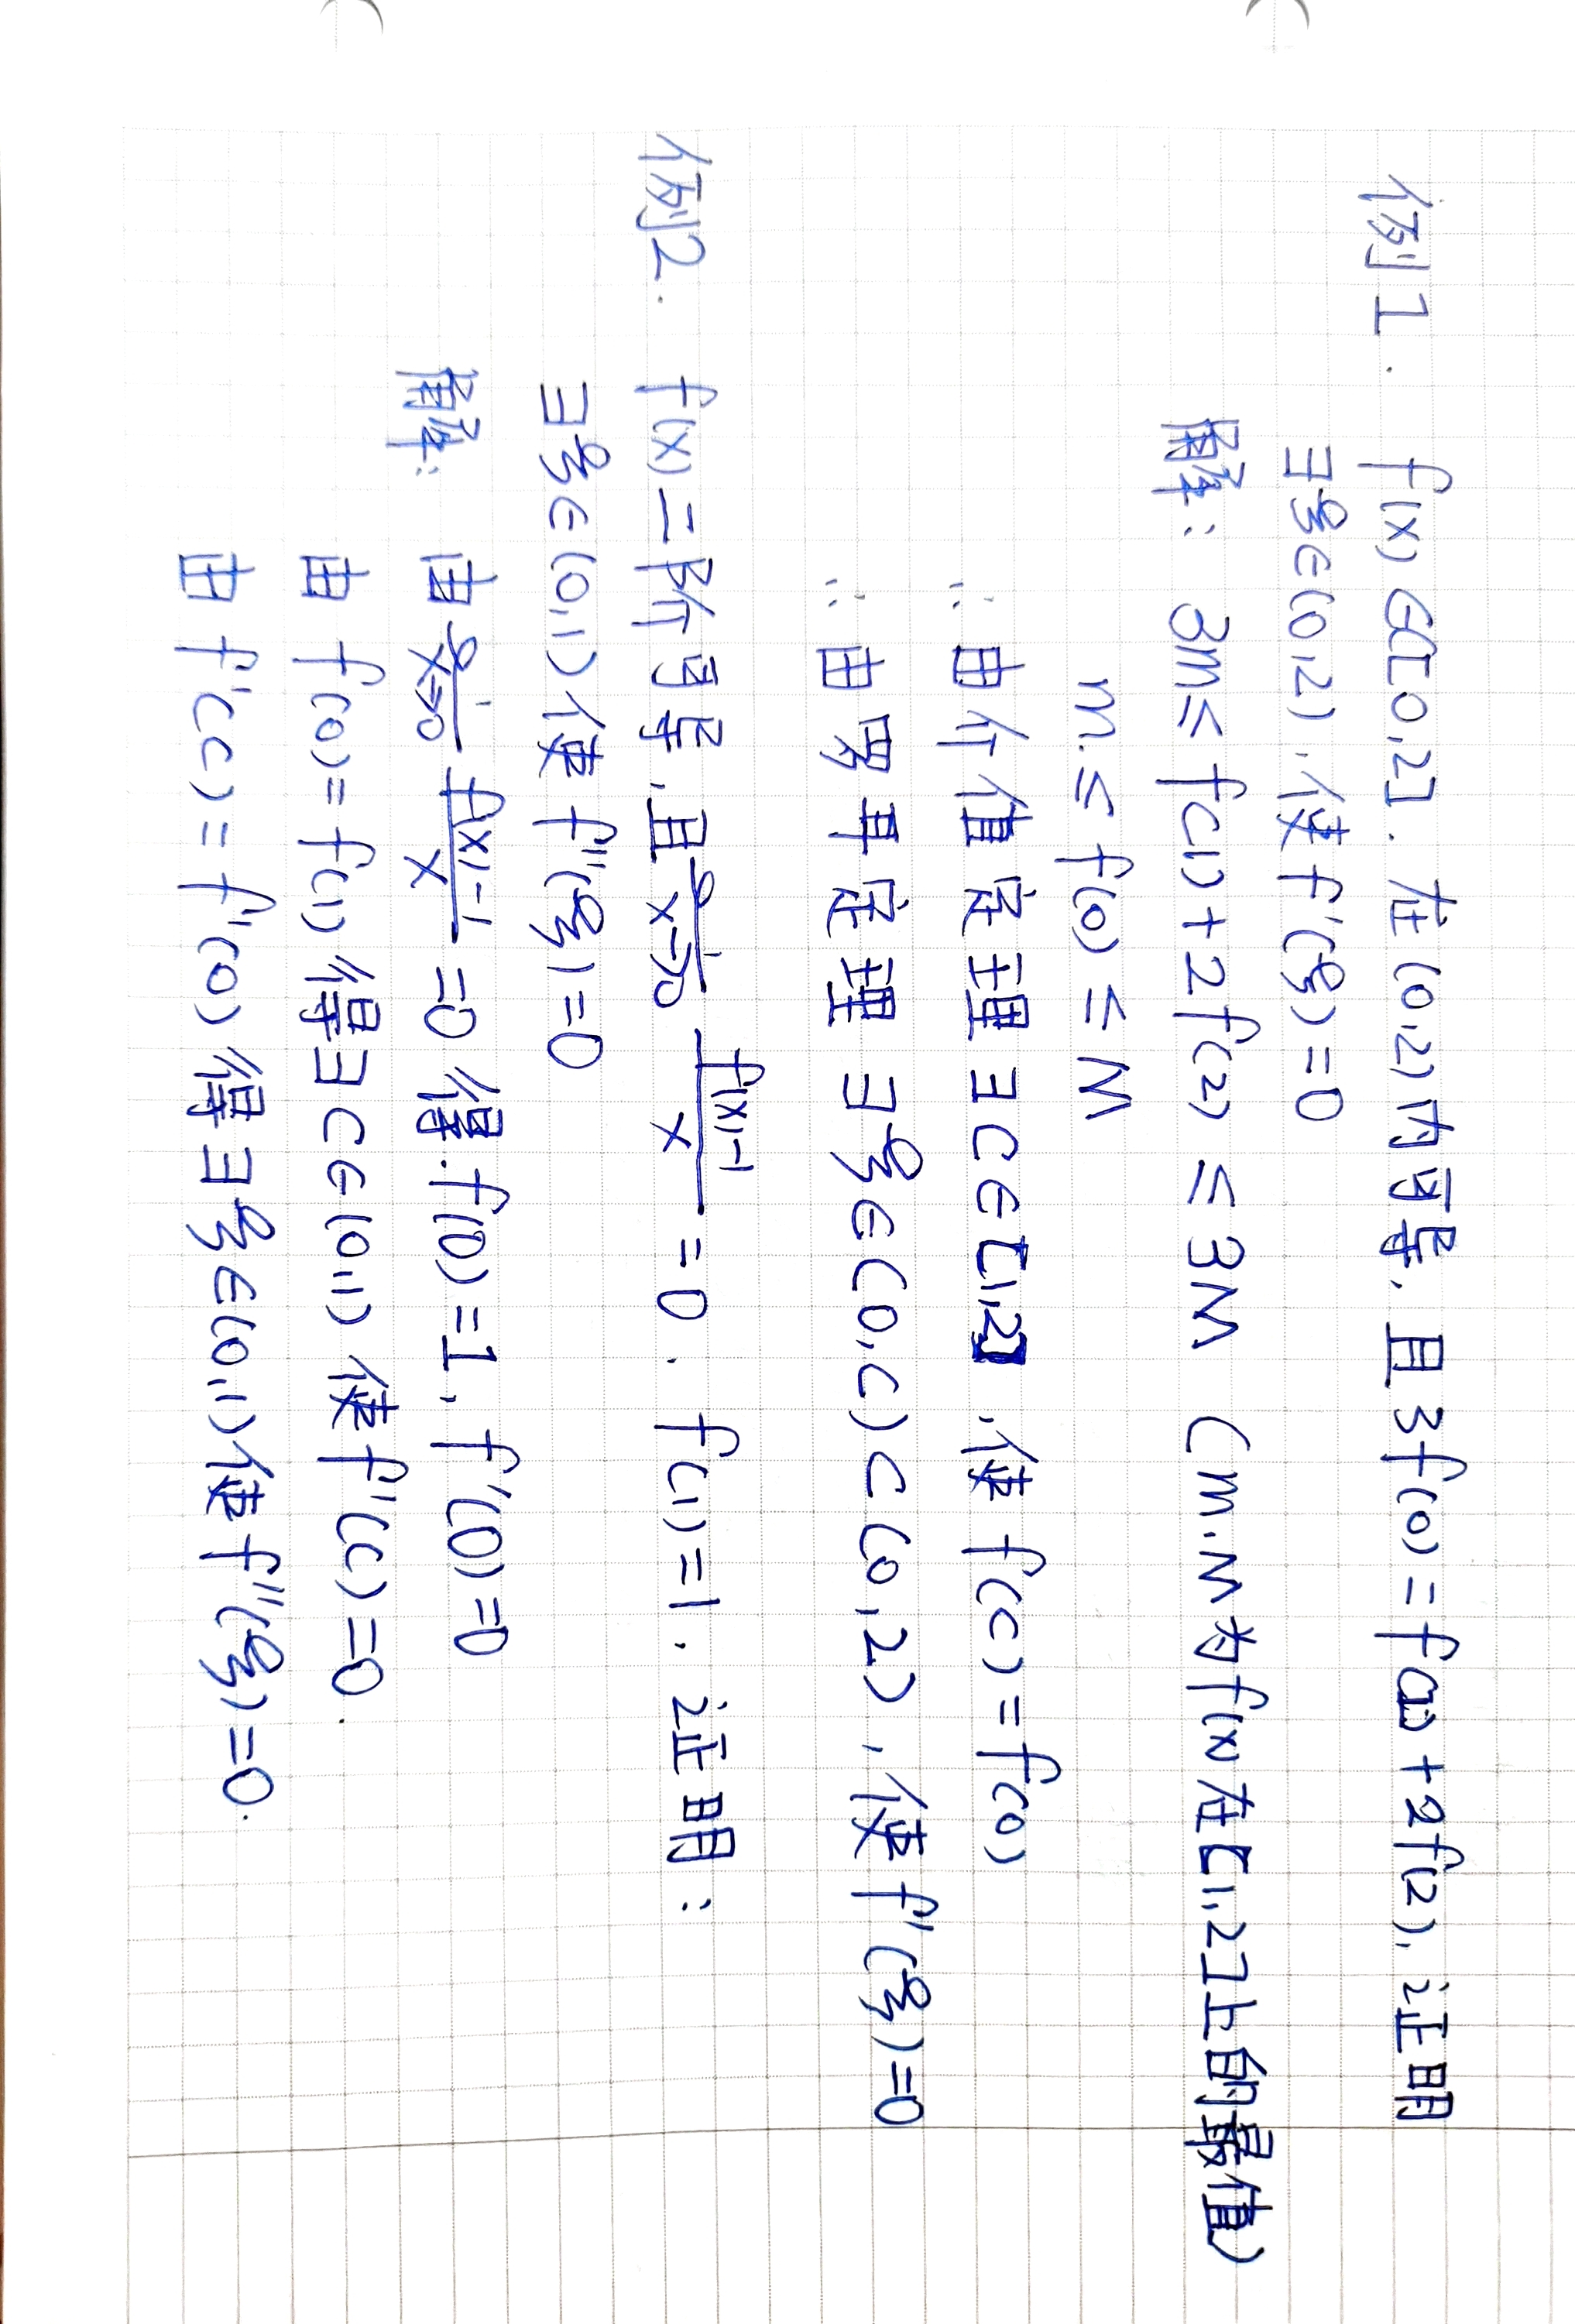 例1. f(x)∈C[0,2]. 在(0,2)内可导, 且3f(0)=f(1)+2f(2), 证明
∃ξ∈(0,2),使f'(ξ)=0
解: 3m≤f(1)+2f(2)≤3M (m.M为f(x)在[1,2]上的最值)
m.≤f(0)≤M
∴由介值定理∃C∈[1,2],使f(c)=f(0)
∴由罗耳定理∃ξ∈(0,c)⊂(0,2),使f'(ξ)=0
例2. f(x)二阶可导,且lim x→0 f(x)-1/x =0. f(1)=1. 证明:
∃ξ∈(0,1)使f''(ξ)=0
解: 由lim x→0 f(x)-1/x =0得.f(0)=1, f'(0)=0
由f(0)=f(1)得∃C∈(0,1)使f'(c)=0.
由f'(c)=f'(0)得∃ξ∈(0,1)使f''(ξ)=0.